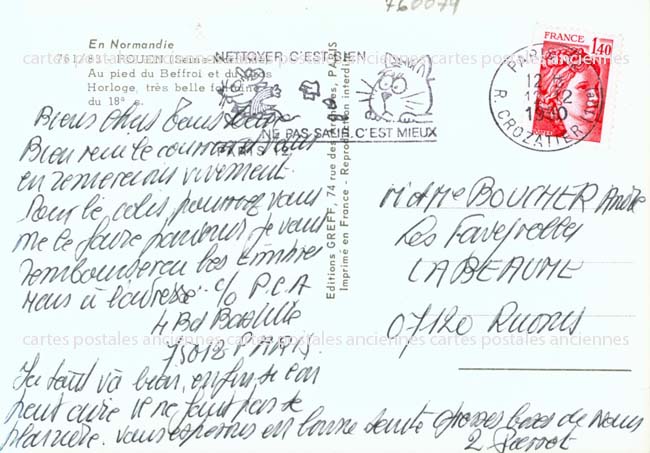 760079
En Normandie
761/83 - ROUEN (Seine-Maritime)
Au pied du Beffroi et du Gros
Horloge, très belle fontaine
du 18e s.
NETTOYER C'EST BIEN
NE PAS SALIR C'EST MIEUX
PARIS 12
FRANCE
1,40
PARIS
12 H
12
1980
R. CROZATIER
Editions GREFF, 74 rue des Archives, PARIS
Imprimé en France - Reproduction interdite
Biens Chers Tous
Bien reçu le courrier vous
en remercions vivement.
Pour le colis pourrez vous
me le faire parvenir je vous
rembourserai les timbres
Mais à l'adresse c/o P.C.A
4 Bd Bastille
75012 PARIS.
Ici tout va bien, enfin si on
peut dire il ne faut pas se
plaindre. Vous espérons en bonne santé grosses bises de nous
2
M et Mme BOUCHER André
Les Faveyrolles
LABEAUME
07120 Ruoms
cartes postales anciennes cartes postales anciennes cartes postales anciennes
cartes postales anciennes cartes postales anciennes cartes postales anciennes